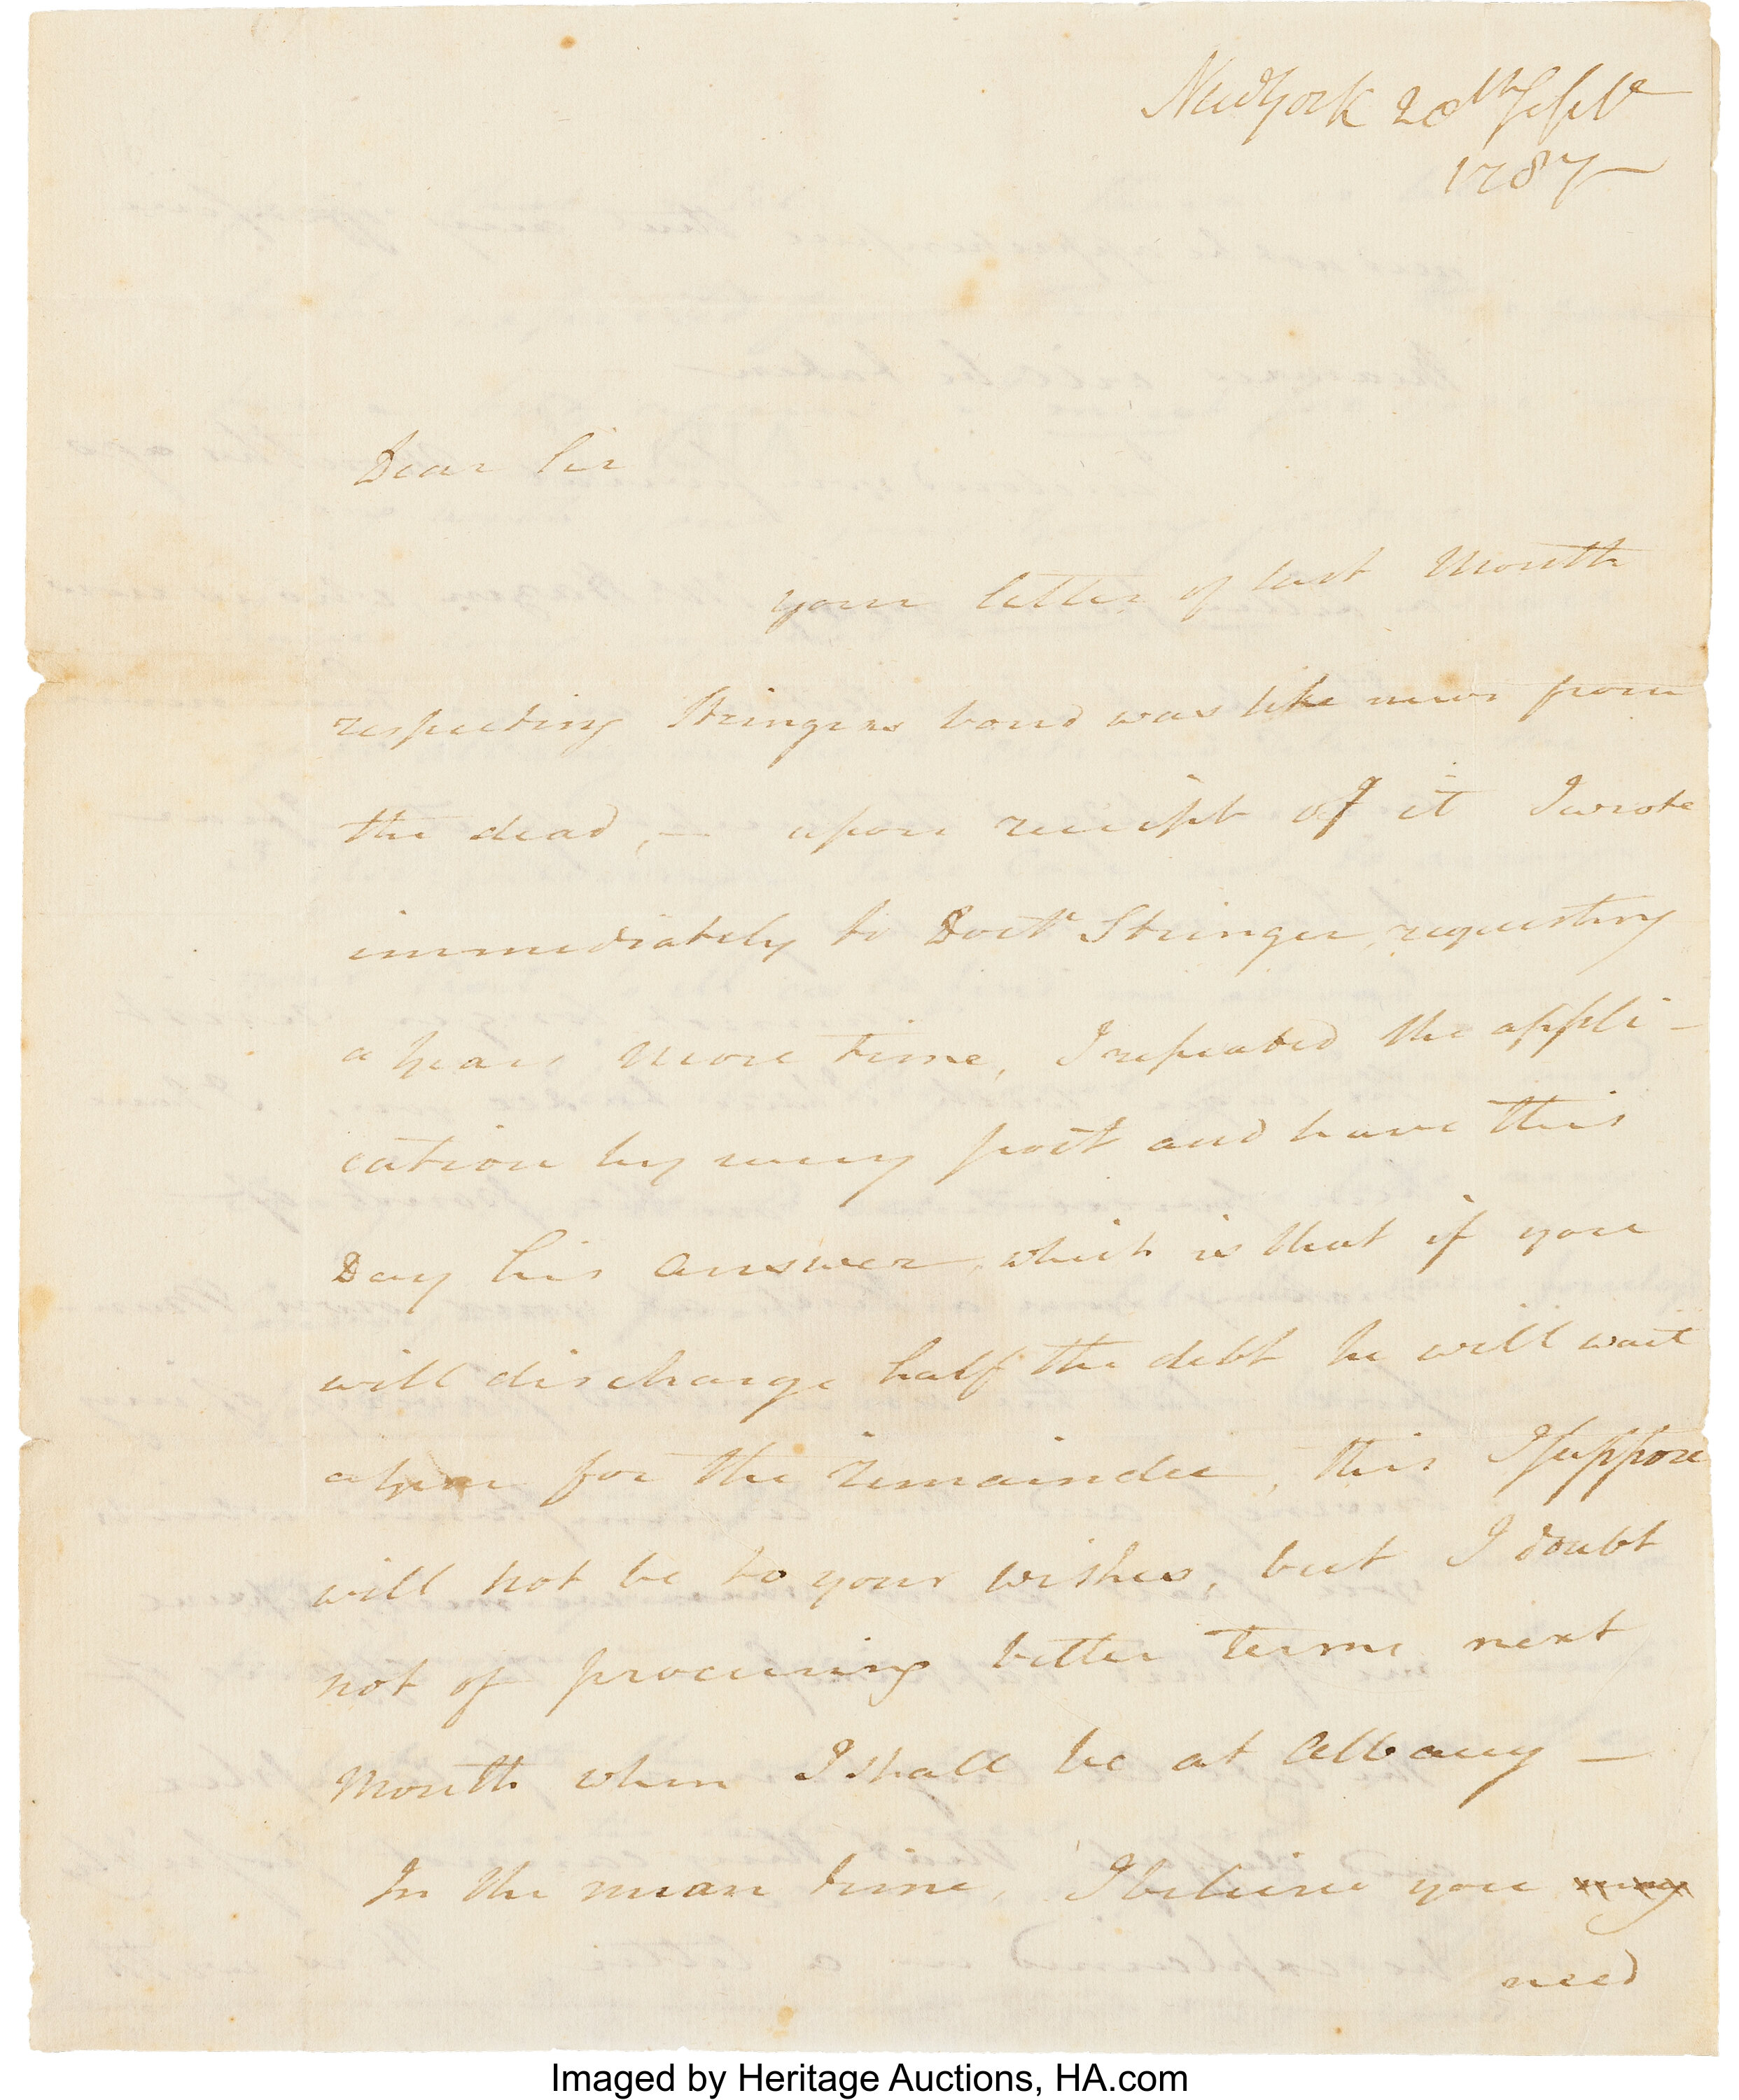 New York 20th Septr
1787
Dear Sir
your letter of last Month
respecting Stringers bond was like news from
the dead, — upon receipt of it I wrote
immediately to Doctr Stringer, requesting
a years more time, I repeated the appli-
cation by every post and have this
Day his answer, which is that if you
will discharge half the debt he will wait
a year for the remainder, this I suppose
will not be to your wishes, but I doubt
not of procuring better terms next
Month when I shall be at Albany —
In the mean time, I believe you may
need
Imaged by Heritage Auctions, HA.com